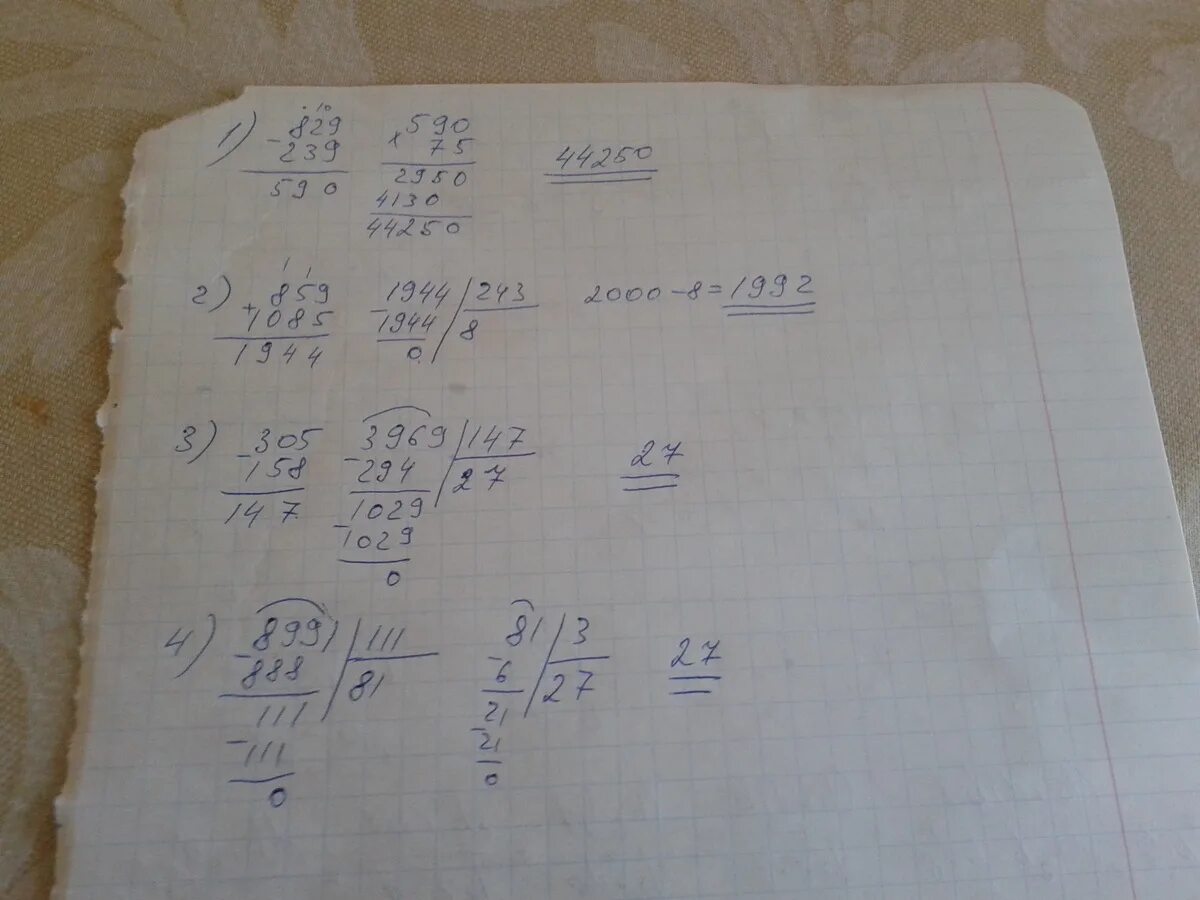 1) -829 ×590 44250
239 75
590 2950
4130
44250
2) +859 -1944 243 2000-8=1992
1085 1944 8
1944 0
3) -305 -3969 147 27
158 294 27
147 -1029
1029
0
4) -8991 111 -81 3 27
888 81 6 27
-111 -21
111 21
0 0